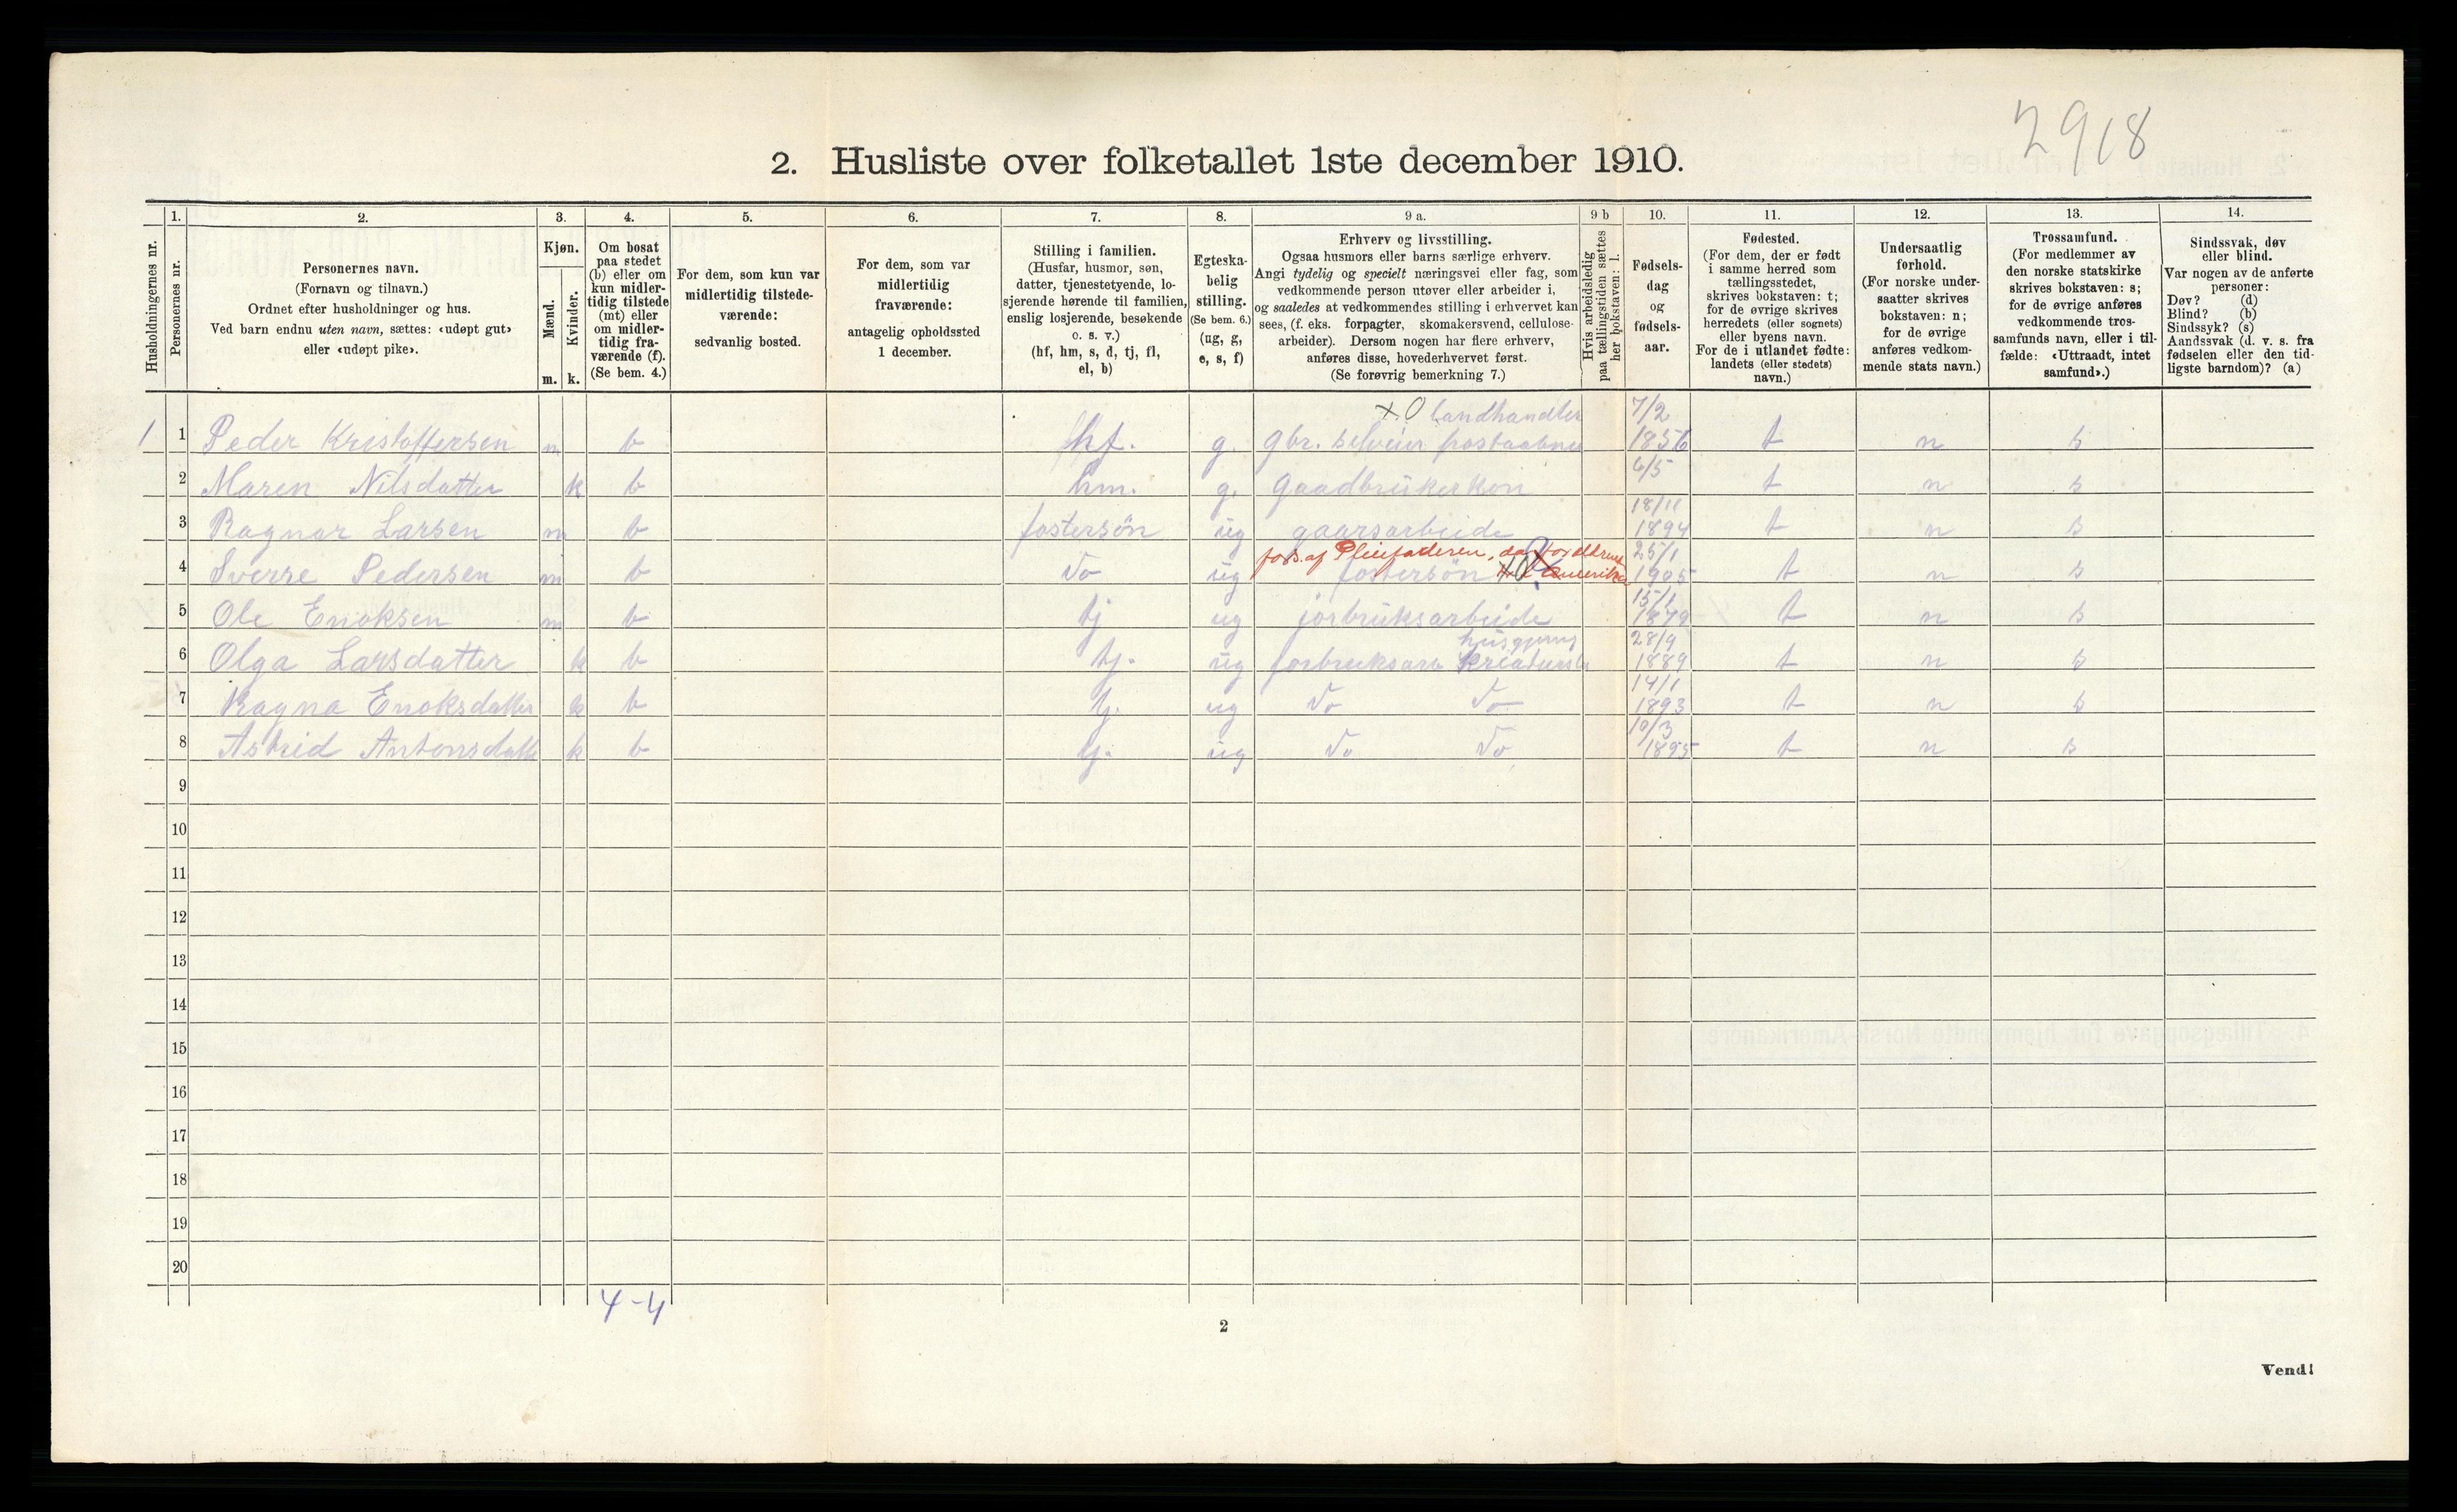 2918
2. Husliste over folketallet 1ste december 1910.
Husholdningernes nr.
1.
Personernes nr.
2.
Personernes navn.
(Fornavn og tilnavn.)
Ordnet efter husholdninger og hus.
Ved barn endnu uten navn, sættes: «udøpt gut»
eller «udøpt pike».
3.
Kjøn.
Mænd.
Kvinder.
m. k.
4.
Om bosat
paa stedet
(b) eller om
kun midler-
tidig tilstede
(mt) eller
om midler-
tidig fra-
værende (f).
(Se bem. 4.)
5.
For dem, som kun var
midlertidig tilstede-
værende:
sedvanlig bosted.
6.
For dem, som var
midlertidig
fraværende:
antagelig opholdssted
1 december.
7.
Stilling i familien.
(Husfar, husmor, søn,
datter, tjenestetyende, lo-
sjerende hørende til familien,
enslig losjerende, besøkende
o. s. v.)
(hf, hm, s, d, tj, fl,
el, b)
8.
Egteska-
belig
stilling.
(Se bem. 6.)
(ug, g,
e, s, f)
9 a.
Erhverv og livsstilling.
Ogsaa husmors eller barns særlige erhverv.
Angi tydelig og specielt næringsvei eller fag, som
vedkommende person utøver eller arbeider i,
og saaledes at vedkommendes stilling i erhvervet kan
sees, (f. eks. forpagter, skomakersvend, cellulose-
arbeider). Dersom nogen har flere erhverv,
anføres disse, hovederhvervet først.
(Se forøvrig bemerkning 7.)
9 b
Hvis arbeidsledig
paa tællingstiden sættes
her bokstaven: l.
10.
Fødsels-
dag
og
fødsels-
aar.
11.
Fødested.
(For dem, der er født
i samme herred som
tællingsstedet,
skrives bokstaven: t;
for de øvrige skrives
herredets (eller sognets)
eller byens navn.
For de i utlandet fødte:
landets (eller stedets)
navn.)
12.
Undersaatlig
forhold.
(For norske under-
saatter skrives
bokstaven: n;
for de øvrige
anføres vedkom-
mende stats navn.)
13.
Trossamfund.
(For medlemmer av
den norske statskirke
skrives bokstaven: s;
for de øvrige anføres
vedkommende tros-
samfunds navn, eller i til-
fælde: «Uttraadt, intet
samfund».)
14.
Sindssvak, døv
eller blind.
Var nogen av de anførte
personer:
Døv? (d)
Blind? (b)
Sindssyk? (s)
Aandssvak (d. v. s. fra
fødselen eller den tid-
ligste barndom)? (a)
x.0 landhandler 7/2
1 1 Peder Kristoffersen m b hf. g. gbr. selveier postaabner 1856 t n s
6/5
2 Maren Nilsdatter k b hm. g. gaadbrukerkon t n s
18/11
3 Ragnar Larsen m b fostersön ug gaarsarbeide 1894 t n s
fors. af Pleiefaderen, da foreldrene 25/1
4 Sverre Pedersen m b do ug fostersön x0 Amerika 1905 t n s
15/1
5 Ole Enoksen m b tj ug jorbruksarbeide 1879 t n s
husgjerning 28/9
6 Olga Larsdatter k b tj. ug jorbruksarb kreaturst 1889 t n s
14/1
7 Ragna Enoksdatter k b tj. ug do do 1893 t n s
10/3
8 Astrid Antonsdatt k b tj. ug do do 1895 t n s
9
10
11
12
13
14
15
16
17
18
19
20
4-4
2
Vend!